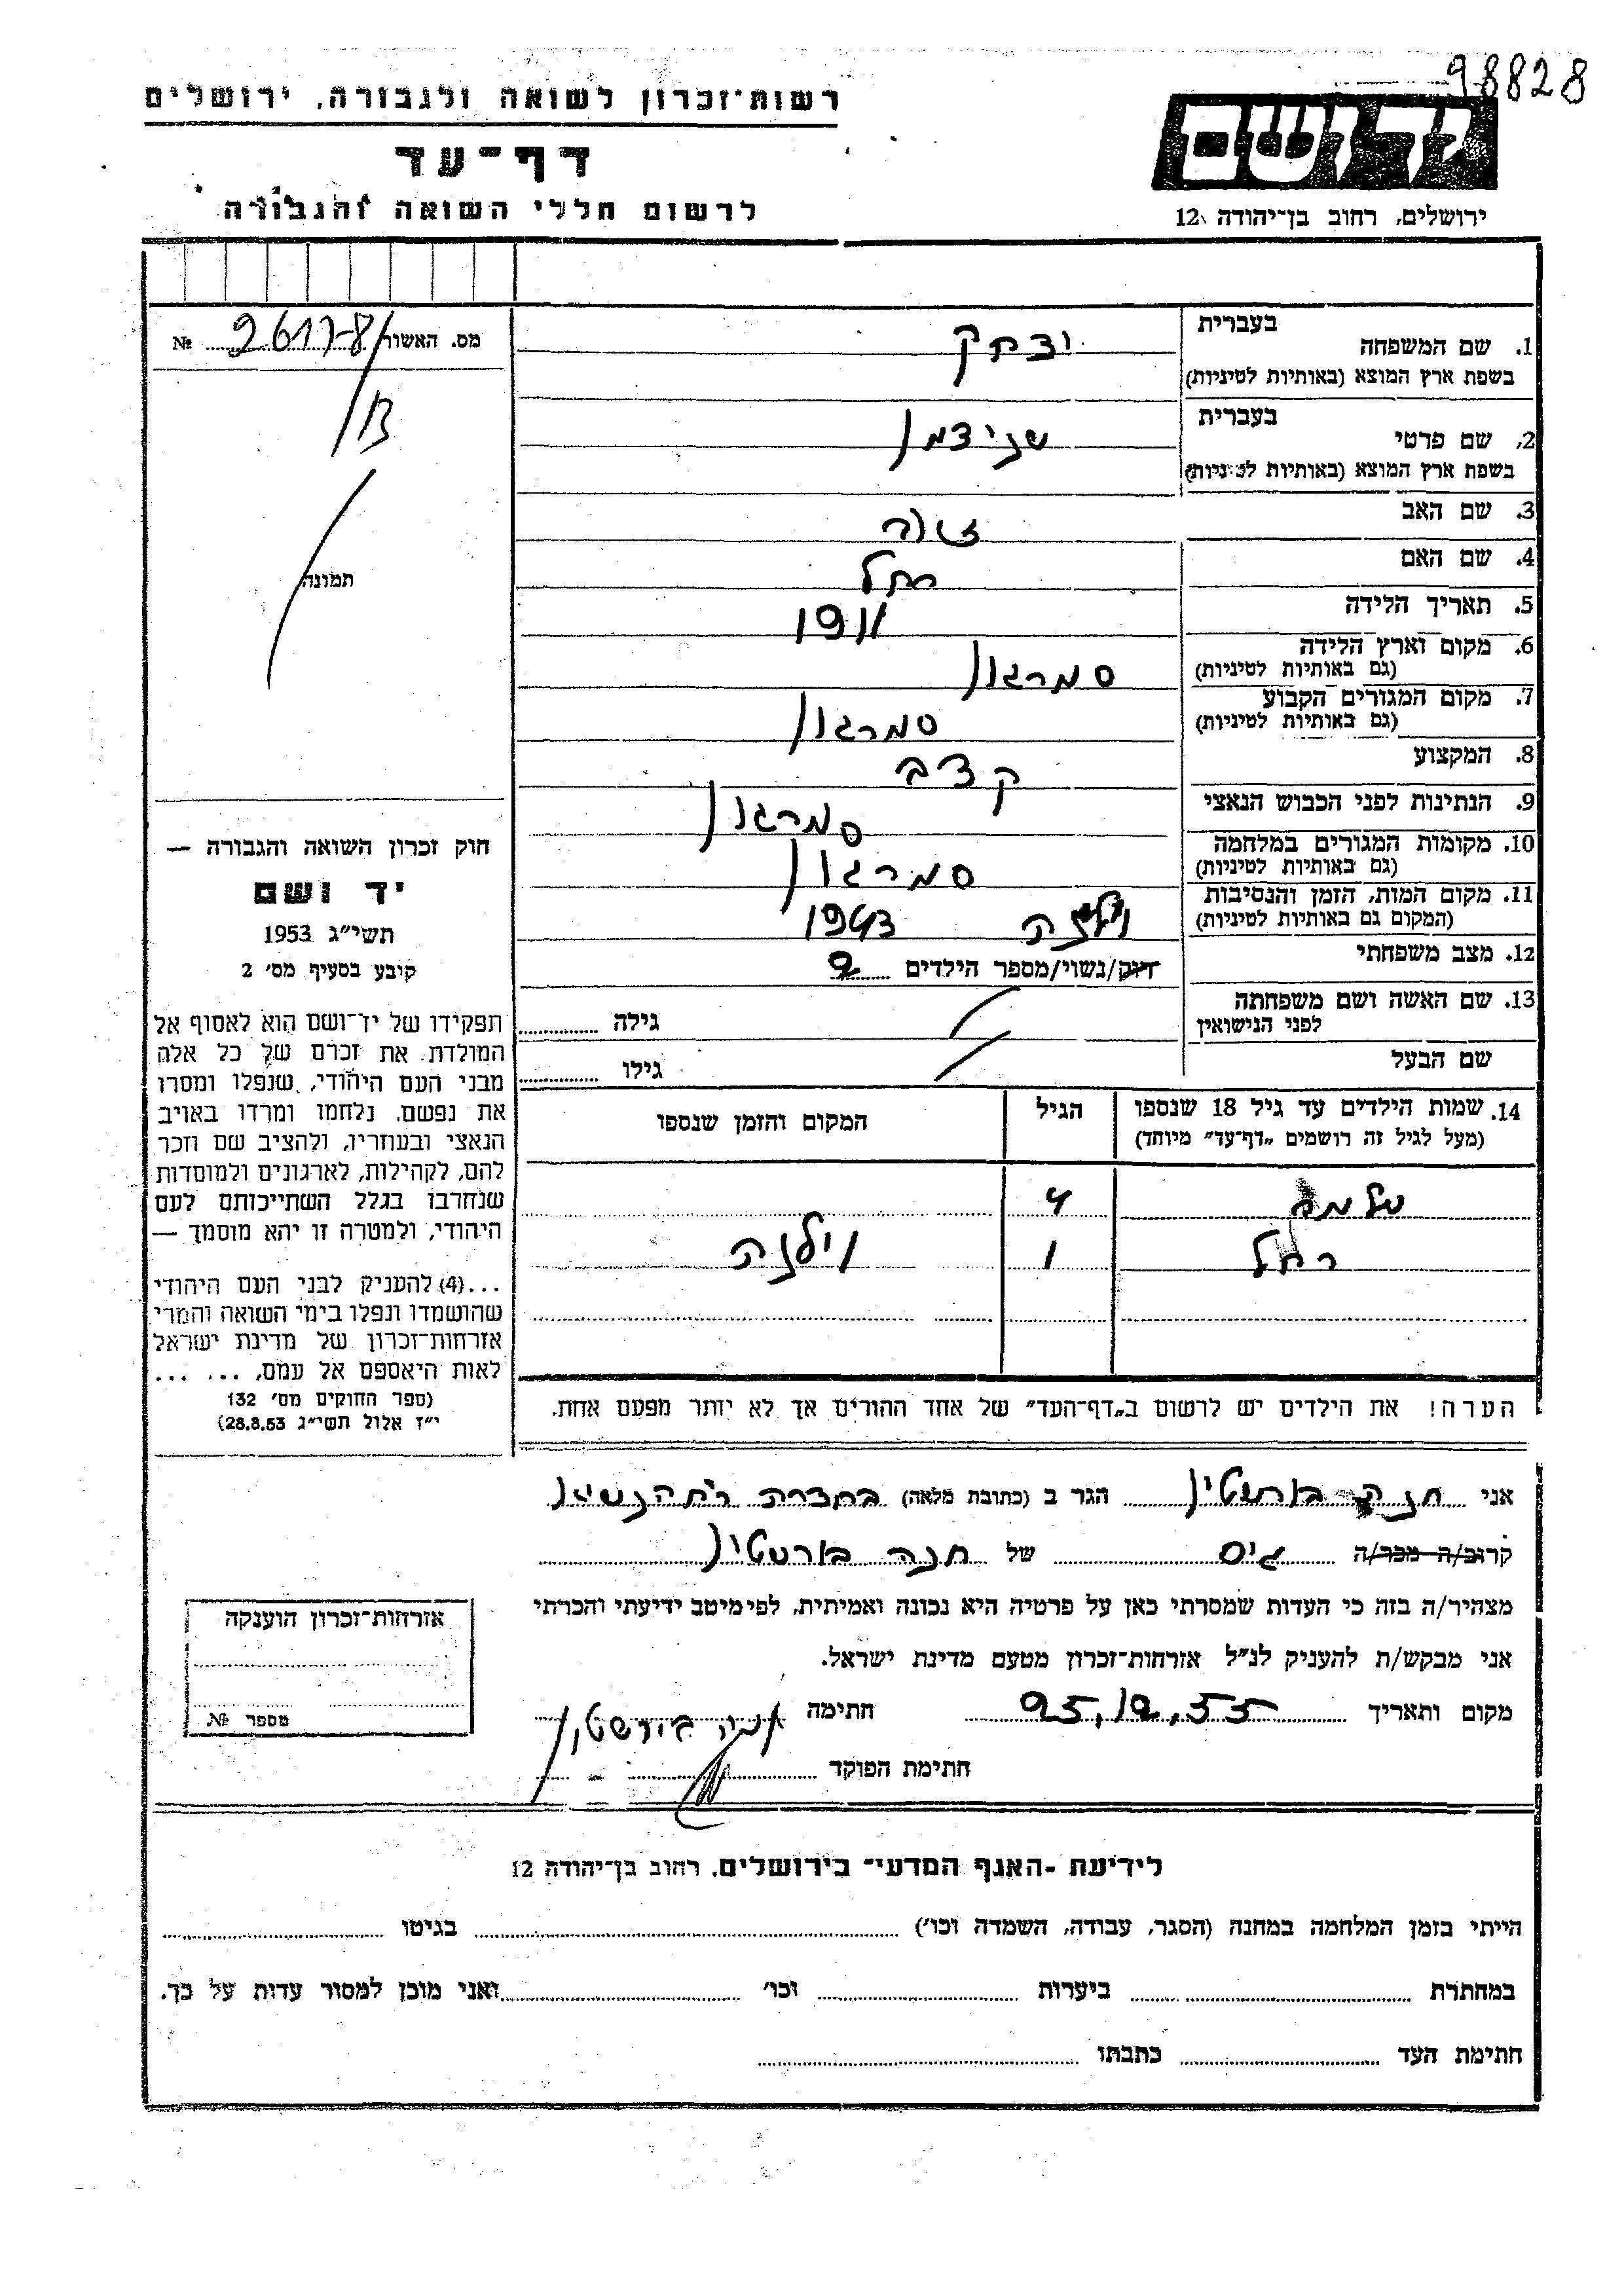 98828
רשות־זכרון לשואה ולגבורה, ירושלים
דף־עד
לרשום חללי השואה והגבורה
ידושם
ירושלים, רחוב בן־יהודה 12
מס. האשור 2617-81 №
13
תמונה
בעברית
1. שם המשפחה יצחק
בשפת ארץ המוצא (באותיות לטיניות)
בעברית
2. שם פרטי שניידמן
בשפת ארץ המוצא (באותיות לטיניות)
3. שם האב
4. שם האם רחל
5. תאריך הלידה 1911
6. מקום וארץ הלידה סמרגון
(גם באותיות לטיניות)
7. מקום המגורים הקבוע סמרגון
(גם באותיות לטיניות)
8. המקצוע קצב
9. הנתינות לפני הכבוש הנאצי סמרגון
10. מקומות המגורים במלחמה סמרגון
(גם באותיות לטיניות)
11. מקום המות, הזמן והנסיבות וילנה 1943
(המקום גם באותיות לטיניות)
12. מצב משפחתי רווק/נשוי/מספר הילדים 2
13. שם האשה ושם משפחתה
לפני הנישואין
גילה
שם הבעל גילו
14. שמות הילדים עד גיל 18 שנספו הגיל המקום והזמן שנספו
(מעל לגיל זה רושמים „דף־עד” מיוחד)
שלמה 4
רחל 1 וילנה
הערה! את הילדים יש לרשום ב„דף־העד” של אחד ההורים אך לא יותר מפעם אחת.
חוק זכרון השואה והגבורה —
יד ושם
תשי״ג 1953
קובע בסעיף מס׳ 2
תפקידו של יד־ושם הוא לאסוף אל
המולדת את זכרם של כל אלה
מבני העם היהודי, שנפלו ומסרו
את נפשם. נלחמו ומרדו באויב
הנאצי ובעוזריו, ולהציב שם וזכר
להם, לקהילות, לארגונים ולמוסדות
שנחרבו בגלל השתייכותם לעם
היהודי, ולמטרה זו יהא מוסמך —
...(4) להעניק לבני העם היהודי
שהושמדו ונפלו בימי השואה והמרי
אזרחות־זכרון של מדינת ישראל
לאות היאספם אל עמם, ... ...
(ספר החוקים מס׳ 132
י״ז אלול תשי״ג 28.8.53)
אני חנה בורשטין הגר ב (כתובת מלאה) בחדרה רח הנשיא
קרוב/ה מכר/ה גיס של חנה בורשטין
מצהיר/ה בזה כי העדות שמסרתי כאן על פרטיה היא נכונה ואמיתית, לפי מיטב ידיעתי והכרתי
אני מבקש/ת להעניק לנ״ל אזרחות־זכרון מטעם מדינת ישראל.
מקום ותאריך 25,12,55 חתימה חנה בורשטין
חתימת הפוקד
אזרחות־זכרון הוענקה
מספר №
לידיעת „האגף המדעי” בירושלים, רחוב בן־יהודה 12
הייתי בזמן המלחמה במחנה (הסגר, עבודה, השמדה וכו׳) בגיטו
במחתרת ביערות וכו׳ ואני מוכן למסור עדות על כך.
חתימת העד כתבתו